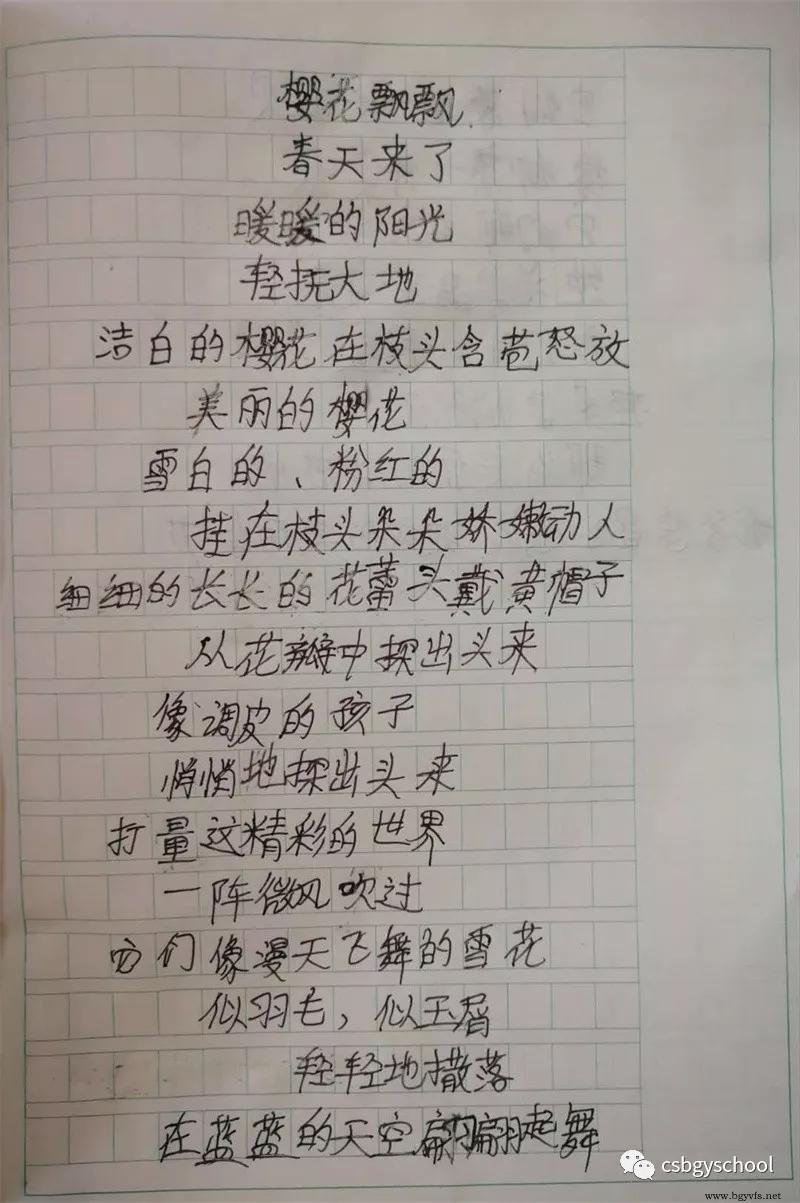 樱花飘飘
春天来了
暖暖的阳光
轻抚大地
洁白的樱花在枝头含苞怒放
美丽的樱花
雪白的、粉红的
挂在枝头朵朵娇嫩动人
细细的长长的花蕾头戴黄帽子
从花瓣中探出头来
像调皮的孩子
悄悄地探出头来
打量这精彩的世界
一阵微风吹过
它们像漫天飞舞的雪花
似羽毛，似玉屑
轻轻地撒落
在蓝蓝的天空翩翩起舞
csbgyschool
www.bgyvfs.net